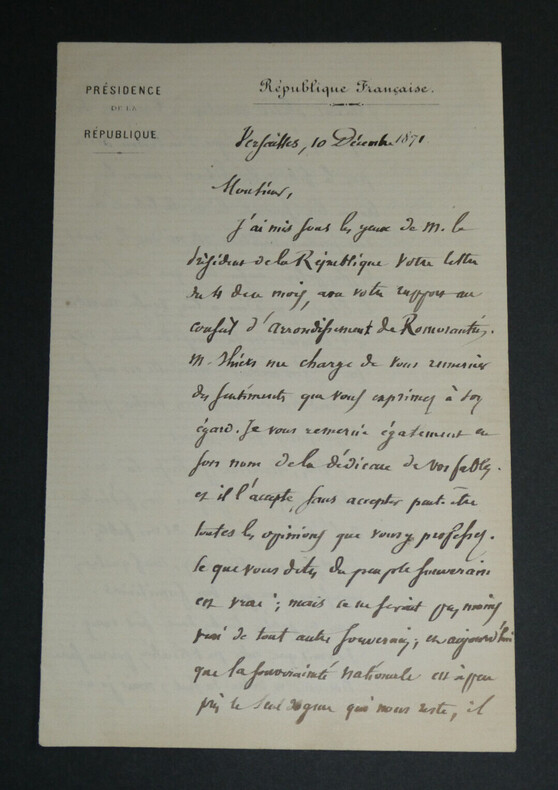 PRÉSIDENCE
DE LA
RÉPUBLIQUE
République Française.
Versailles, 10 Décembre 1871
Monsieur,
J'ai mis sous les yeux de M. le
Président de la République votre lettre
du 4 de ce mois, votre rapport au
conseil d'arrondissement de Romorantin.
M. Thiers me charge de vous remercier
des sentiments que vous exprimez à son
égard. Je vous remercie également en
son nom de la dédicace de vos fables.
et il l'accepte, sans accepter peut-être
toutes les opinions que vous y professez.
Ce que vous dites du peuple souverain
est vrai; mais ce ne serait pas moins
vrai de tout autre souverain; en aujourd'hui
que la souveraineté nationale est à peu
près le seul qui nous reste, il